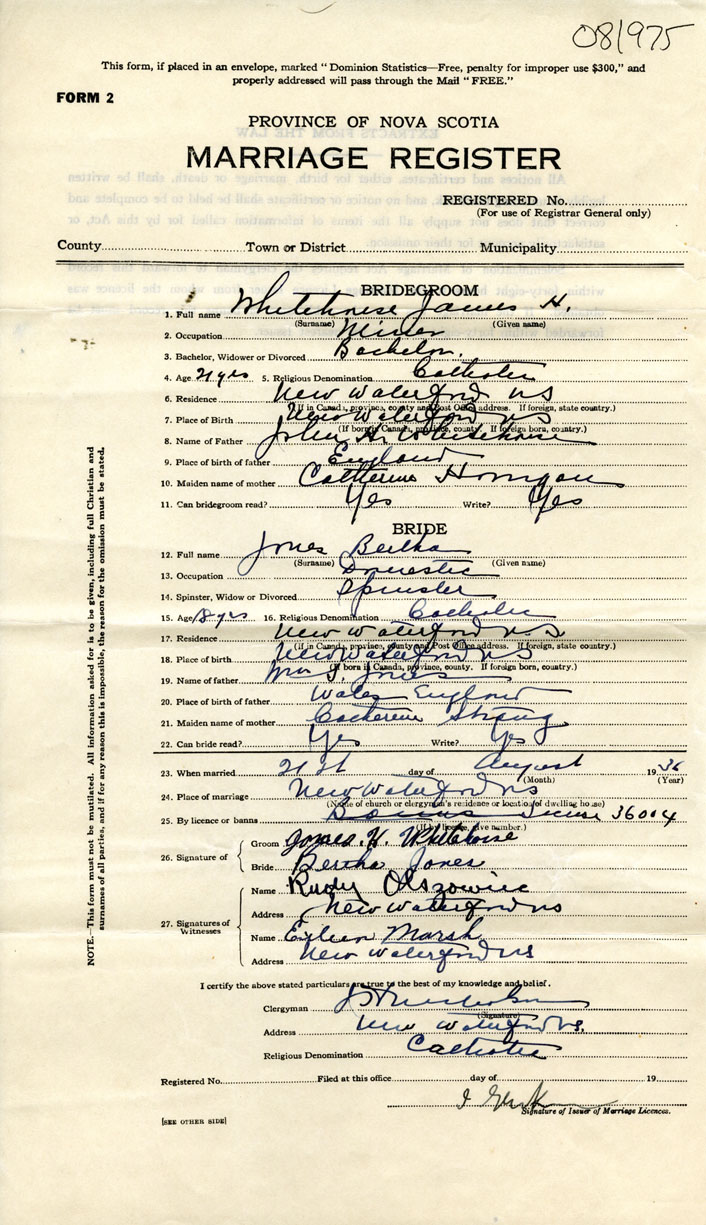 081975
This form, if placed in an envelope, marked "Dominion Statistics—Free, penalty for improper use $300," and
properly addressed will pass through the Mail "FREE."
FORM 2
PROVINCE OF NOVA SCOTIA
MARRIAGE REGISTER
REGISTERED No.
(For use of Registrar General only)
County Town or District Municipality
BRIDEGROOM
1. Full name Whitehouse James H.
(Surname) (Given name)
2. Occupation Miner
3. Bachelor, Widower or Divorced Bachelor.
4. Age 21 yrs 5. Religious Denomination Catholic
6. Residence New Waterford NS
(If in Canada, province, county and Post Office address. If foreign, state country.)
7. Place of Birth New Waterford NS
(If born in Canada, province, county. If foreign born, country.)
8. Name of Father John H. Whitehouse
9. Place of birth of father England
10. Maiden name of mother Catherine Horrigan
11. Can bridegroom read? Yes Write? Yes
BRIDE
12. Full name Jones Bertha
(Surname) (Given name)
13. Occupation Domestic
14. Spinster, Widow or Divorced Spinster
15. Age 18 yrs 16. Religious Denomination Catholic
17. Residence New Waterford N.S
(If in Canada, province, county and Post Office address. If foreign, state country.)
18. Place of birth New Waterford NS
(If born in Canada, province, county. If foreign born, country.)
19. Name of father Wm J. Jones
20. Place of birth of father Wales England
21. Maiden name of mother Catherine Strang
22. Can bride read? Yes Write? Yes
23. When married 21st day of August 1936
(Month) (Year)
24. Place of marriage New Waterford NS
(Name of church or clergyman's residence or location of dwelling house)
25. By licence or banns License 36004
(If by licence, give number.)
26. Signature of Groom James. H. Whitehouse
Bride Bertha Jones
27. Signatures of Witnesses Name Rudy Olszowiec
Address New Waterford NS
Name Eileen Marsh
Address New Waterford NS
I certify the above stated particulars are true to the best of my knowledge and belief.
Clergyman
(Signature)
Address New Waterford NS.
Religious Denomination Catholic
Registered No. Filed at this office day of 19
Signature of Issuer of Marriage Licences.
[SEE OTHER SIDE]
NOTE.—This form must not be mutilated. All information asked for is to be given, including full Christian and
surnames of all parties, and if for any reason this is impossible, the reason for the omission must be stated.